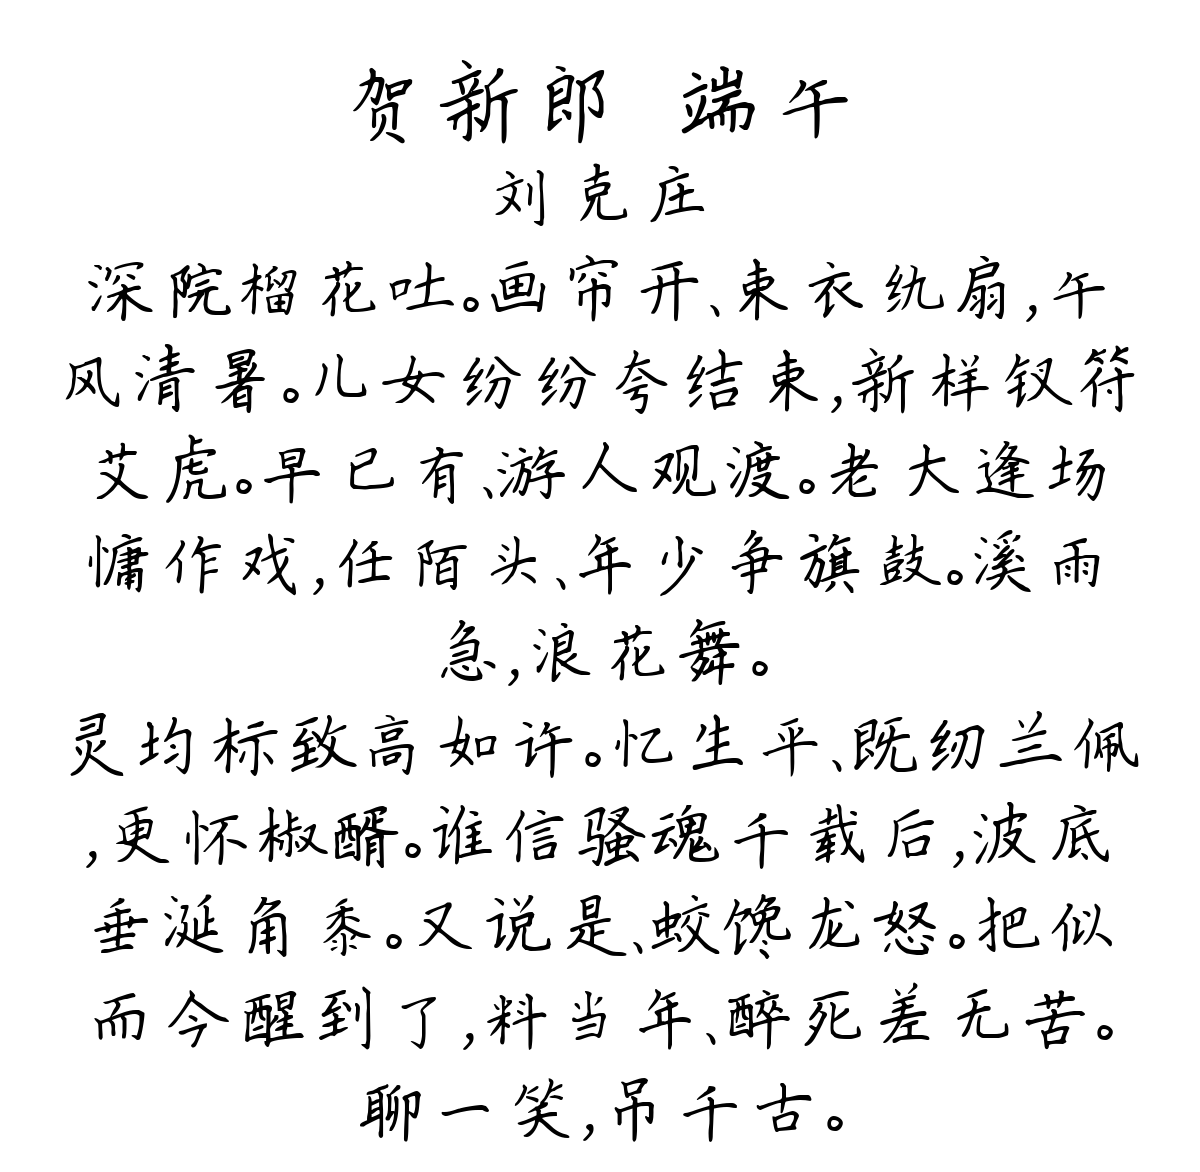 贺新郎 端午
刘克庄
深院榴花吐。画帘开、束衣纨扇,午
风清暑。儿女纷纷夸结束,新样钗符
艾虎。早已有、游人观渡。老大逢场
慵作戏,任陌头、年少争旗鼓。溪雨
急,浪花舞。
灵均标致高如许。忆生平、既纫兰佩
,更怀椒醑。谁信骚魂千载后,波底
垂涎角黍。又说是、蛟馋龙怒。把似
而今醒到了,料当年、醉死差无苦。
聊一笑,吊千古。